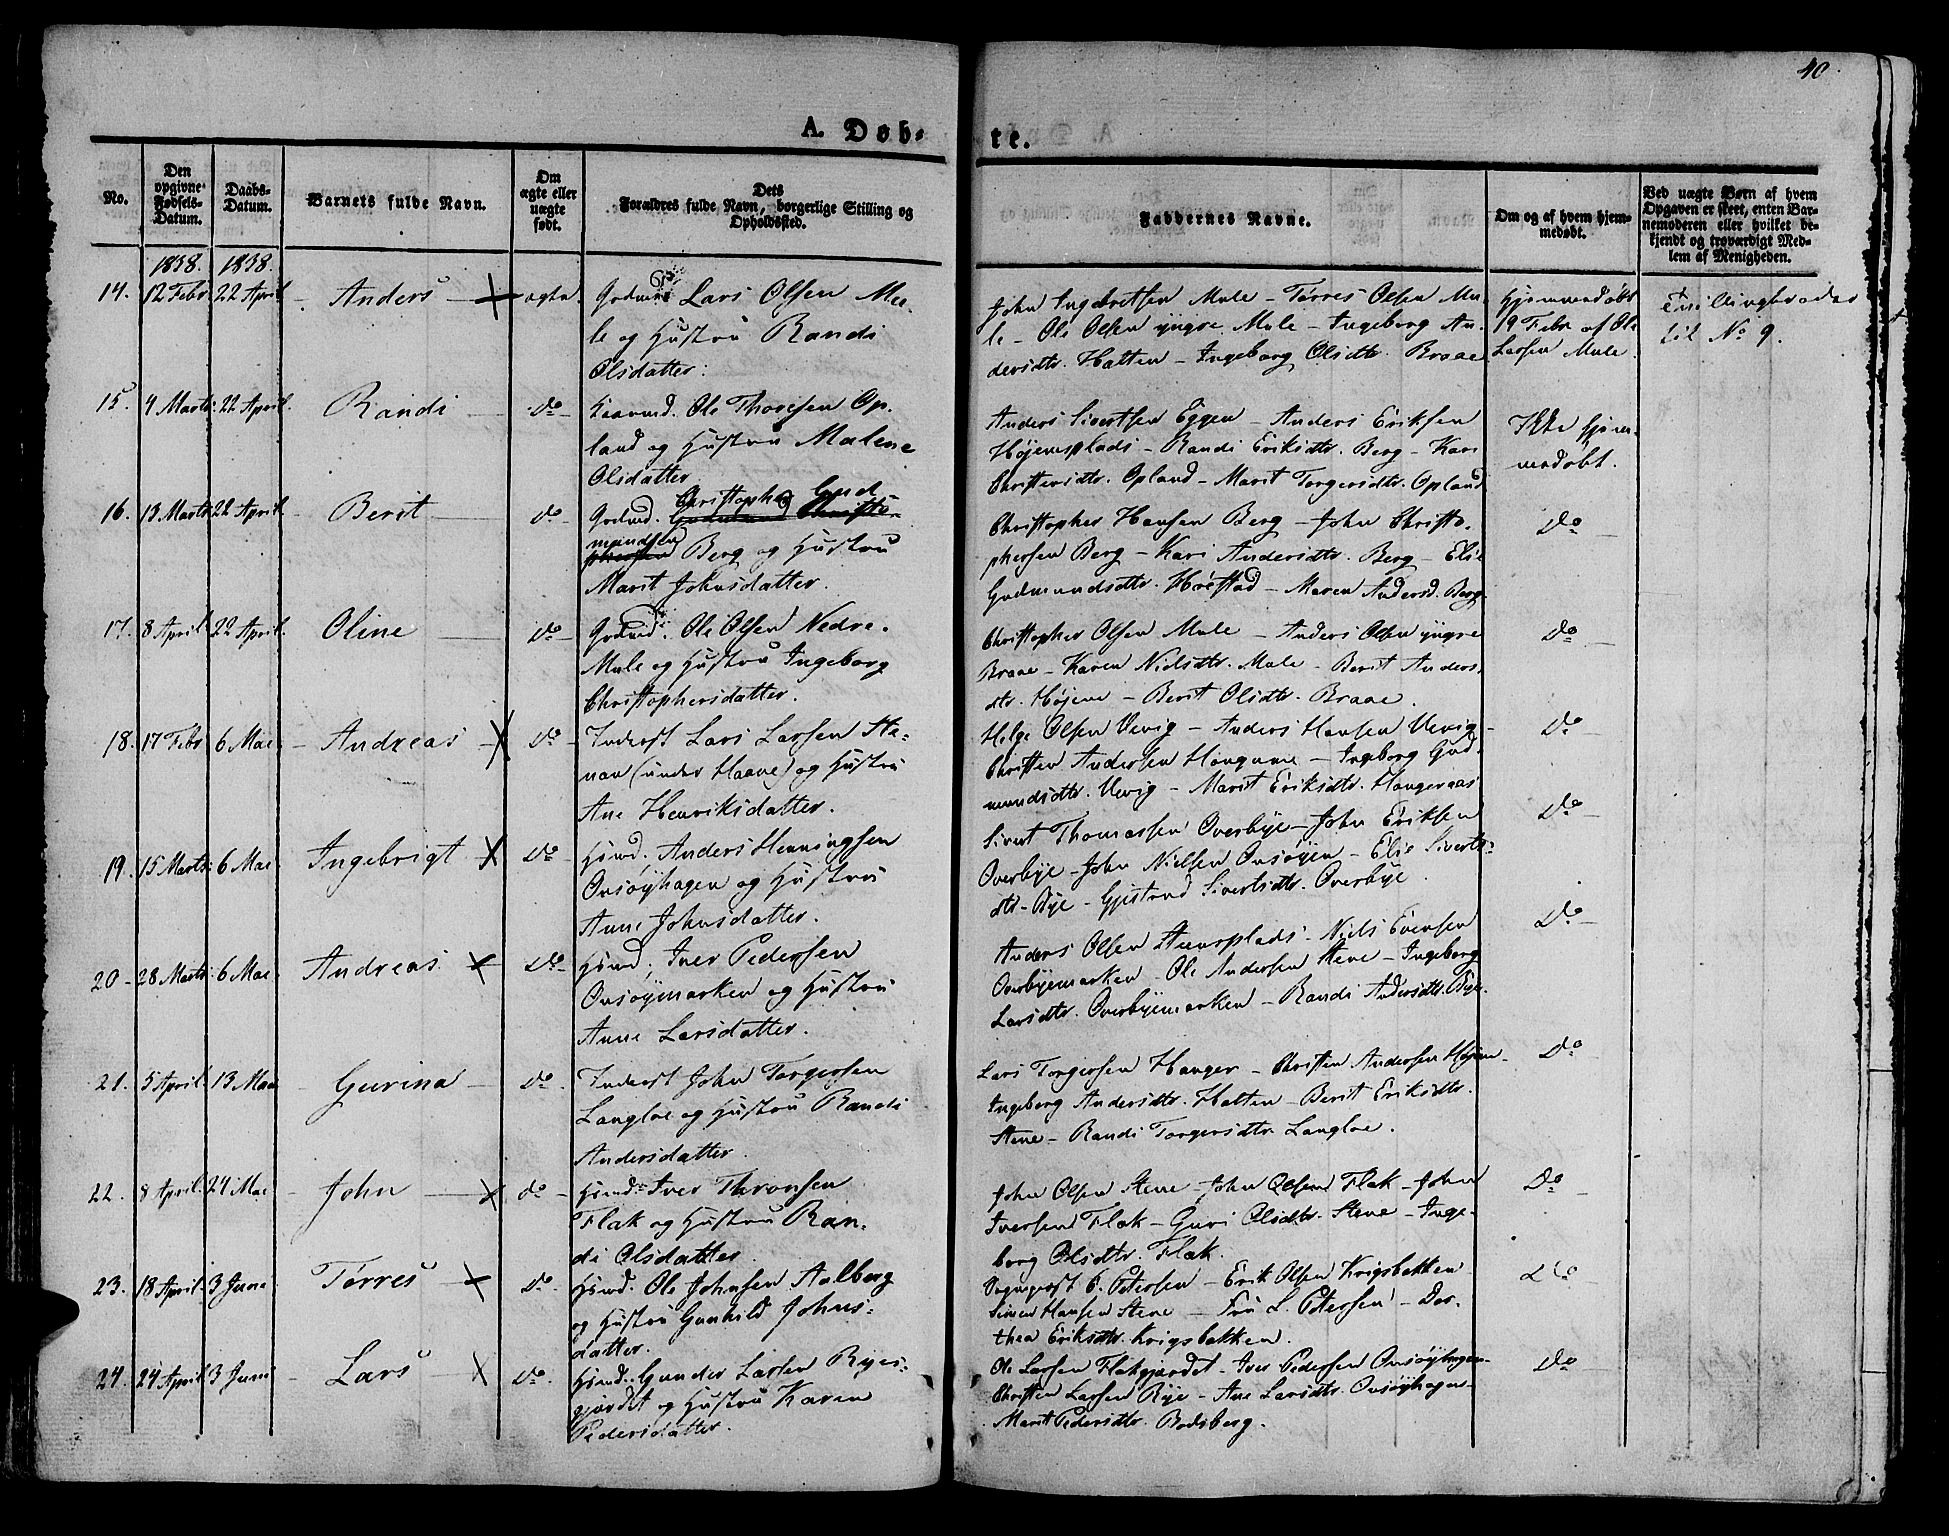 40.
A. Døb-
te.
No.
Den opgivne Fødsels-Datum.
Daabs-Datum.
Barnets fulde Navn.
Om ægte eller uægte født.
Dets Forældres fulde Navn, borgerlige Stilling og Opholdssted.
Faddernes Navne.
Om og af hvem hjemmedøbt.
Ved uægte Børn af hvem Opgaven er skeet, enten Barnemoderen eller hvilket bekjendt og troværdigt Medlem af Menigheden.
1838. 1838.
14. 12 Febr 22 April - Anders - ægte.
Lars Olsen Mu-
le og Hustru Randi
Olsdatter:
John Ingebretsen Mule - Tørres Olsen Mu-
le - Ole Olsen yngre Mule - Ingeborg An-
dersdtr. Hatten - Ingeborg Olsdtr. Braae
Hjemmedøbt
19 Febr af Ole
Larsen Mule.
Tvillingbroder
til No 9.
15. 4 Marts 22 April. Randi - do -
Ole Thoresen Op-
land og Hustru Malene
Olsdatter
Anders Sivertsen Eggen - Anders Eriksen
Højemsplads - Randi Eriksdtr. Berg - Kari
Christensdtr. Opland - Marit Torgersdtr. Opland
Ikke hjem-
medøbt.
16. 13 Marts 22 April - Berit - do -
Christopher Gud-
Gudmund Christo-
mundsen
phersen Berg og Hustru
Marit Johnsdatter.
Christopher Hansen Berg - John Christo-
phersen Berg - Kari Andersdtr. Berg - Elie
Gudmundsdtr. Hoèstad - Maren Andersd. Berg
Do
17. 8 April 22 April. Oline - do -
Ole Olsen Nedre-
Mule og Hustru Ingeborg
Christophersdatter.
Christopher Olsen Mule - Anders Olsen yngre
Braae - Karen Nielsdtr. Mule - Berit Anders-
dtr. Højeme - Berit Olsdtr. Braae.
Do -
18. 17 Febr 6 Mai - Andreas - do -
Inderst Lars Larsen
(under Haave) og Hustru
Ane Henriksdatter.
Helge Olsen Uevig - Anders Hansen Uevig -
Christen Andersen - Ingeborg Gud-
mundsdtr. Uevig - Marit Eriksdtr.
Do -
19. 15 Marts 6 Mai - Ingebrigt do -
Husmd. Anders Henningsen
Onsøyhagen og Hustru
Anne Johnsdatter.
Sivert Thomassen Overbye - John Eriksen
Overbye - John Nielsen Onsøyen - Elie Siverts-
dtr - Bye - Gjertrud Sivertsdtr. Overbye.
Do -
20 - 28 Marts 6 Mai - Andreas. Do -
Husmd. Iver Pedersen
Onsøymarken og Hustru
Anne Larsdatter.
Anders Olsen - Niels Evensen
Overbyemarken - Ole Andersen Stene - Ingeborg
Larsdtr. Overbyemarken - Randi Andersdtr. Bye.
Do -
21. 5 April. 13 Mai Gurina - do -
Inderst John Torgersen
Langloe og Hustru Randi
Andersdatter.
Lars Torgersen Hanger - Christen Andersen
Ingeborg Andersdtr. Hatten - Berit Eriksdtr.
Stene - Randi Torgersdtr Langloe.
Do -
22. 8 April. 24 Mai - John - do -
Husmd. Iver Thronsen
Flak og Hustru Ran-
di Olsdatter.
John Olsen Stene - John Olsen Flak - John
Iversen Flak - Guri Olsdtr. Stene - Inge-
borg Olsdtr. Flak.
Do -
23. 18 April. 3 Juni Tørres - do -
Husmd. Ole Johnsen Aalberg
og Hustru Gunhild Johns-
datter.
P. Petersen - Erik Olsen Krigsbakken
Simen Hansen Stene - Fru L. Petersen - Dor-
thea Eriksdtr. Krigsbakken.
Do
24. 24 April 3 Juni - Lars - do -
Husmd. Gunder Larsen Byes-
gjærdet og Hustru Karen
Pedersdatter.
Ole Larsen Flakgjærdet - Iver Pedersen Onsøyhagen -
Christen Larsen Bye - Ane Larsdtr. Onsøyhagen -
Marit Pedersdtr. Bodsberg.
Do -